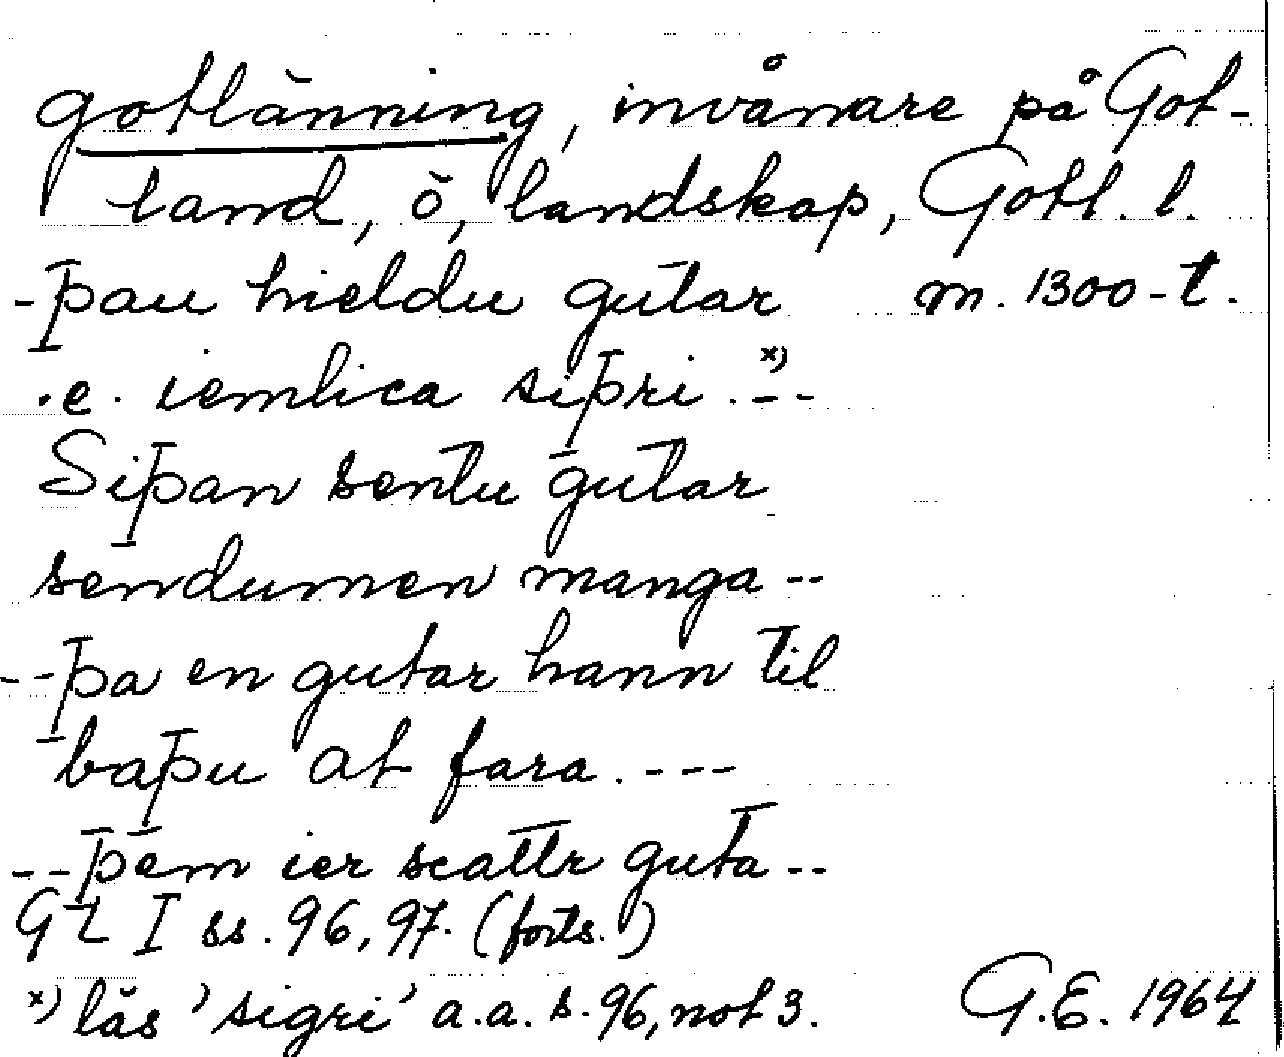 gotlänning, invånare på Got-
land, ö, landskap, Gotl. l.
-þau hieldu gutar m. 1300-t.
.e. iemlica siþri.x)--
Siþan sentu gutar
sendumen manga --
--þa en gutar hann til
baþu at fara. ---
--þem ier scattr guta --
GL I ss. 96, 97. (forts.)
x) läs 'sigri' a.a. s. 96, not 3. G.E. 1964